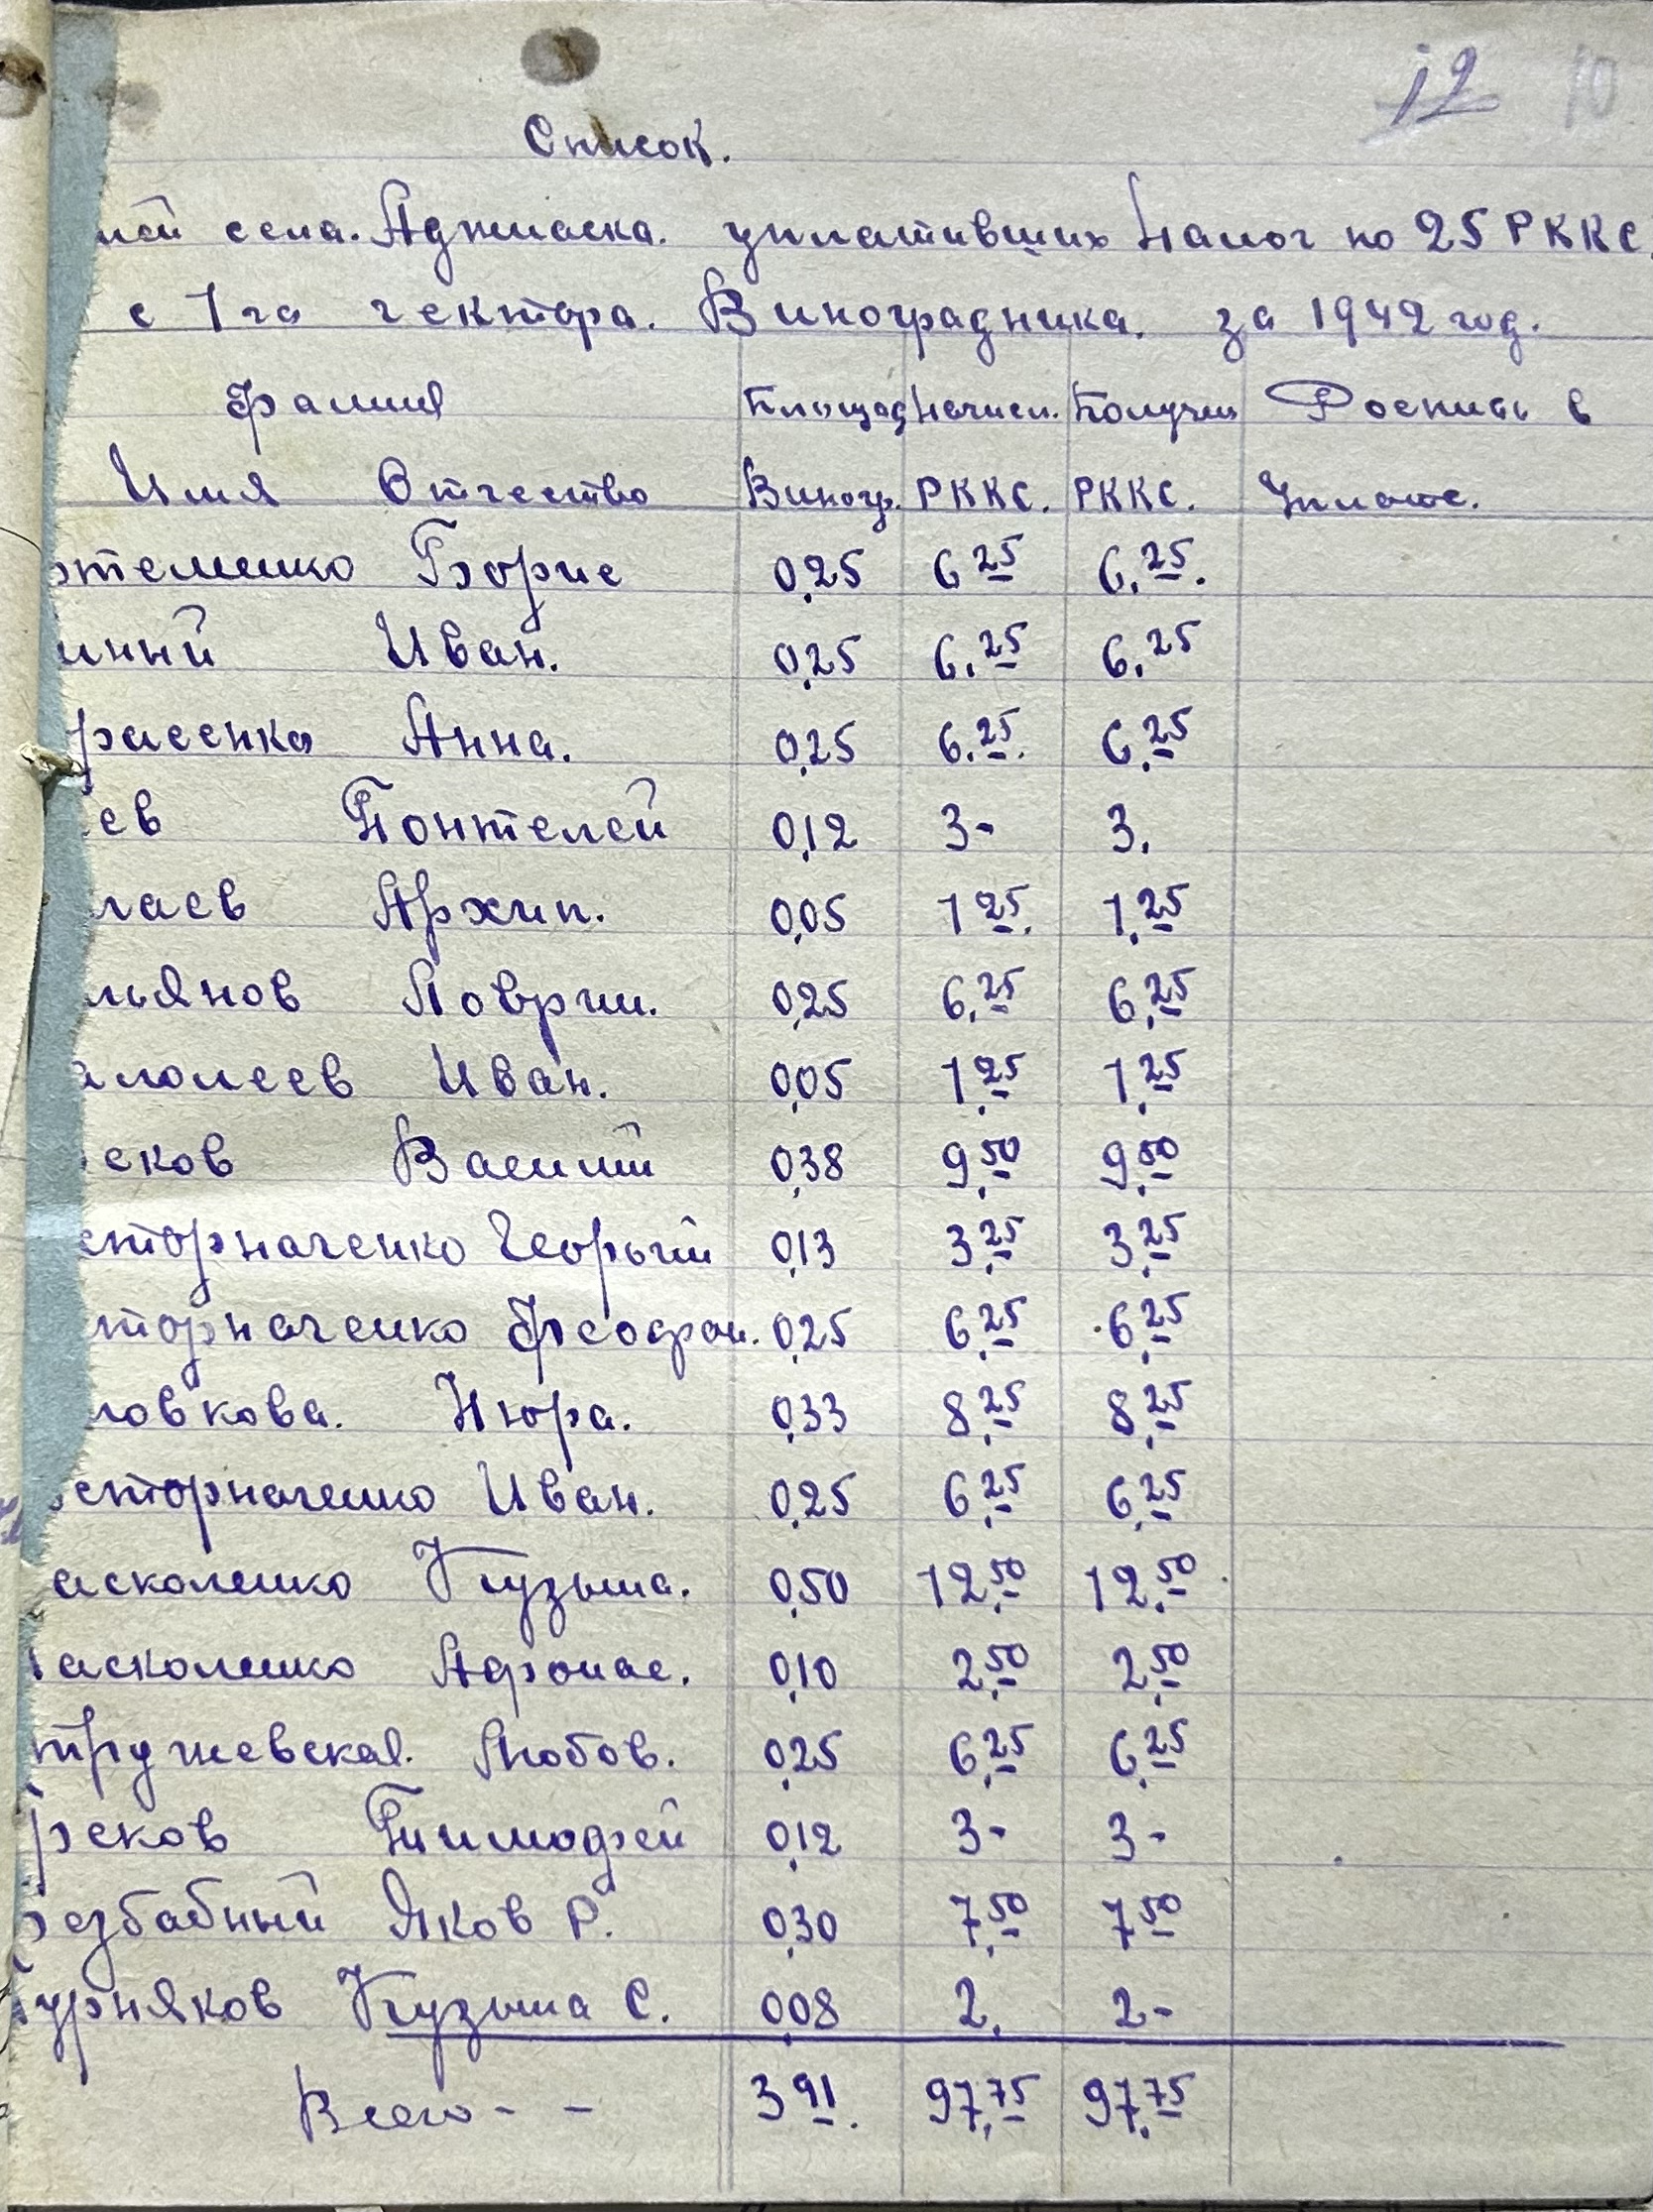 12 10
Список.
лей села. Аджиаска. уплативших Налог по 25 РККС
с 1 га гектора. Виноградника. за 1942 год.
Фамилия Площад Начисл. Получен Роспись в
Имя Отчество Виногр. РККС. РККС. Уплате.
ртеменко Борис 0,25 6 25 6.25.
инный Иван. 0,25 6.25 6.25
расенко Анна. 0,25 6.25. 6.25
ев Понтелей 0,12 3- 3.
лаев Архип. 0,05 1 25. 1.25
льянов Ловрин. 0,25 6.25 6.25
алолеев Иван. 0,05 1.25 1.25
сков Василий 0,38 9.50 9.50
сторначенко Георьгий 0,13 3.25 3.25
торначенко Феофан. 0,25 6.25 6.25
ловкова. Нюра. 0,33 8.25 8.25
есторначенко Иван. 0,25 6.25 6.25
асколенко Кузьма. 0,50 12.50 12.50
асколенко Афонас. 0,10 2.50 2.50
тружевская. Любов. 0,25 6.25 6.25
реков Тимофей 0,12 3- 3-
езбабный Яков Р. 0,30 7.50 7 50
урняков Кузьма С. 0,08 2. 2-
Всего - - 3 91. 97.75 97.75